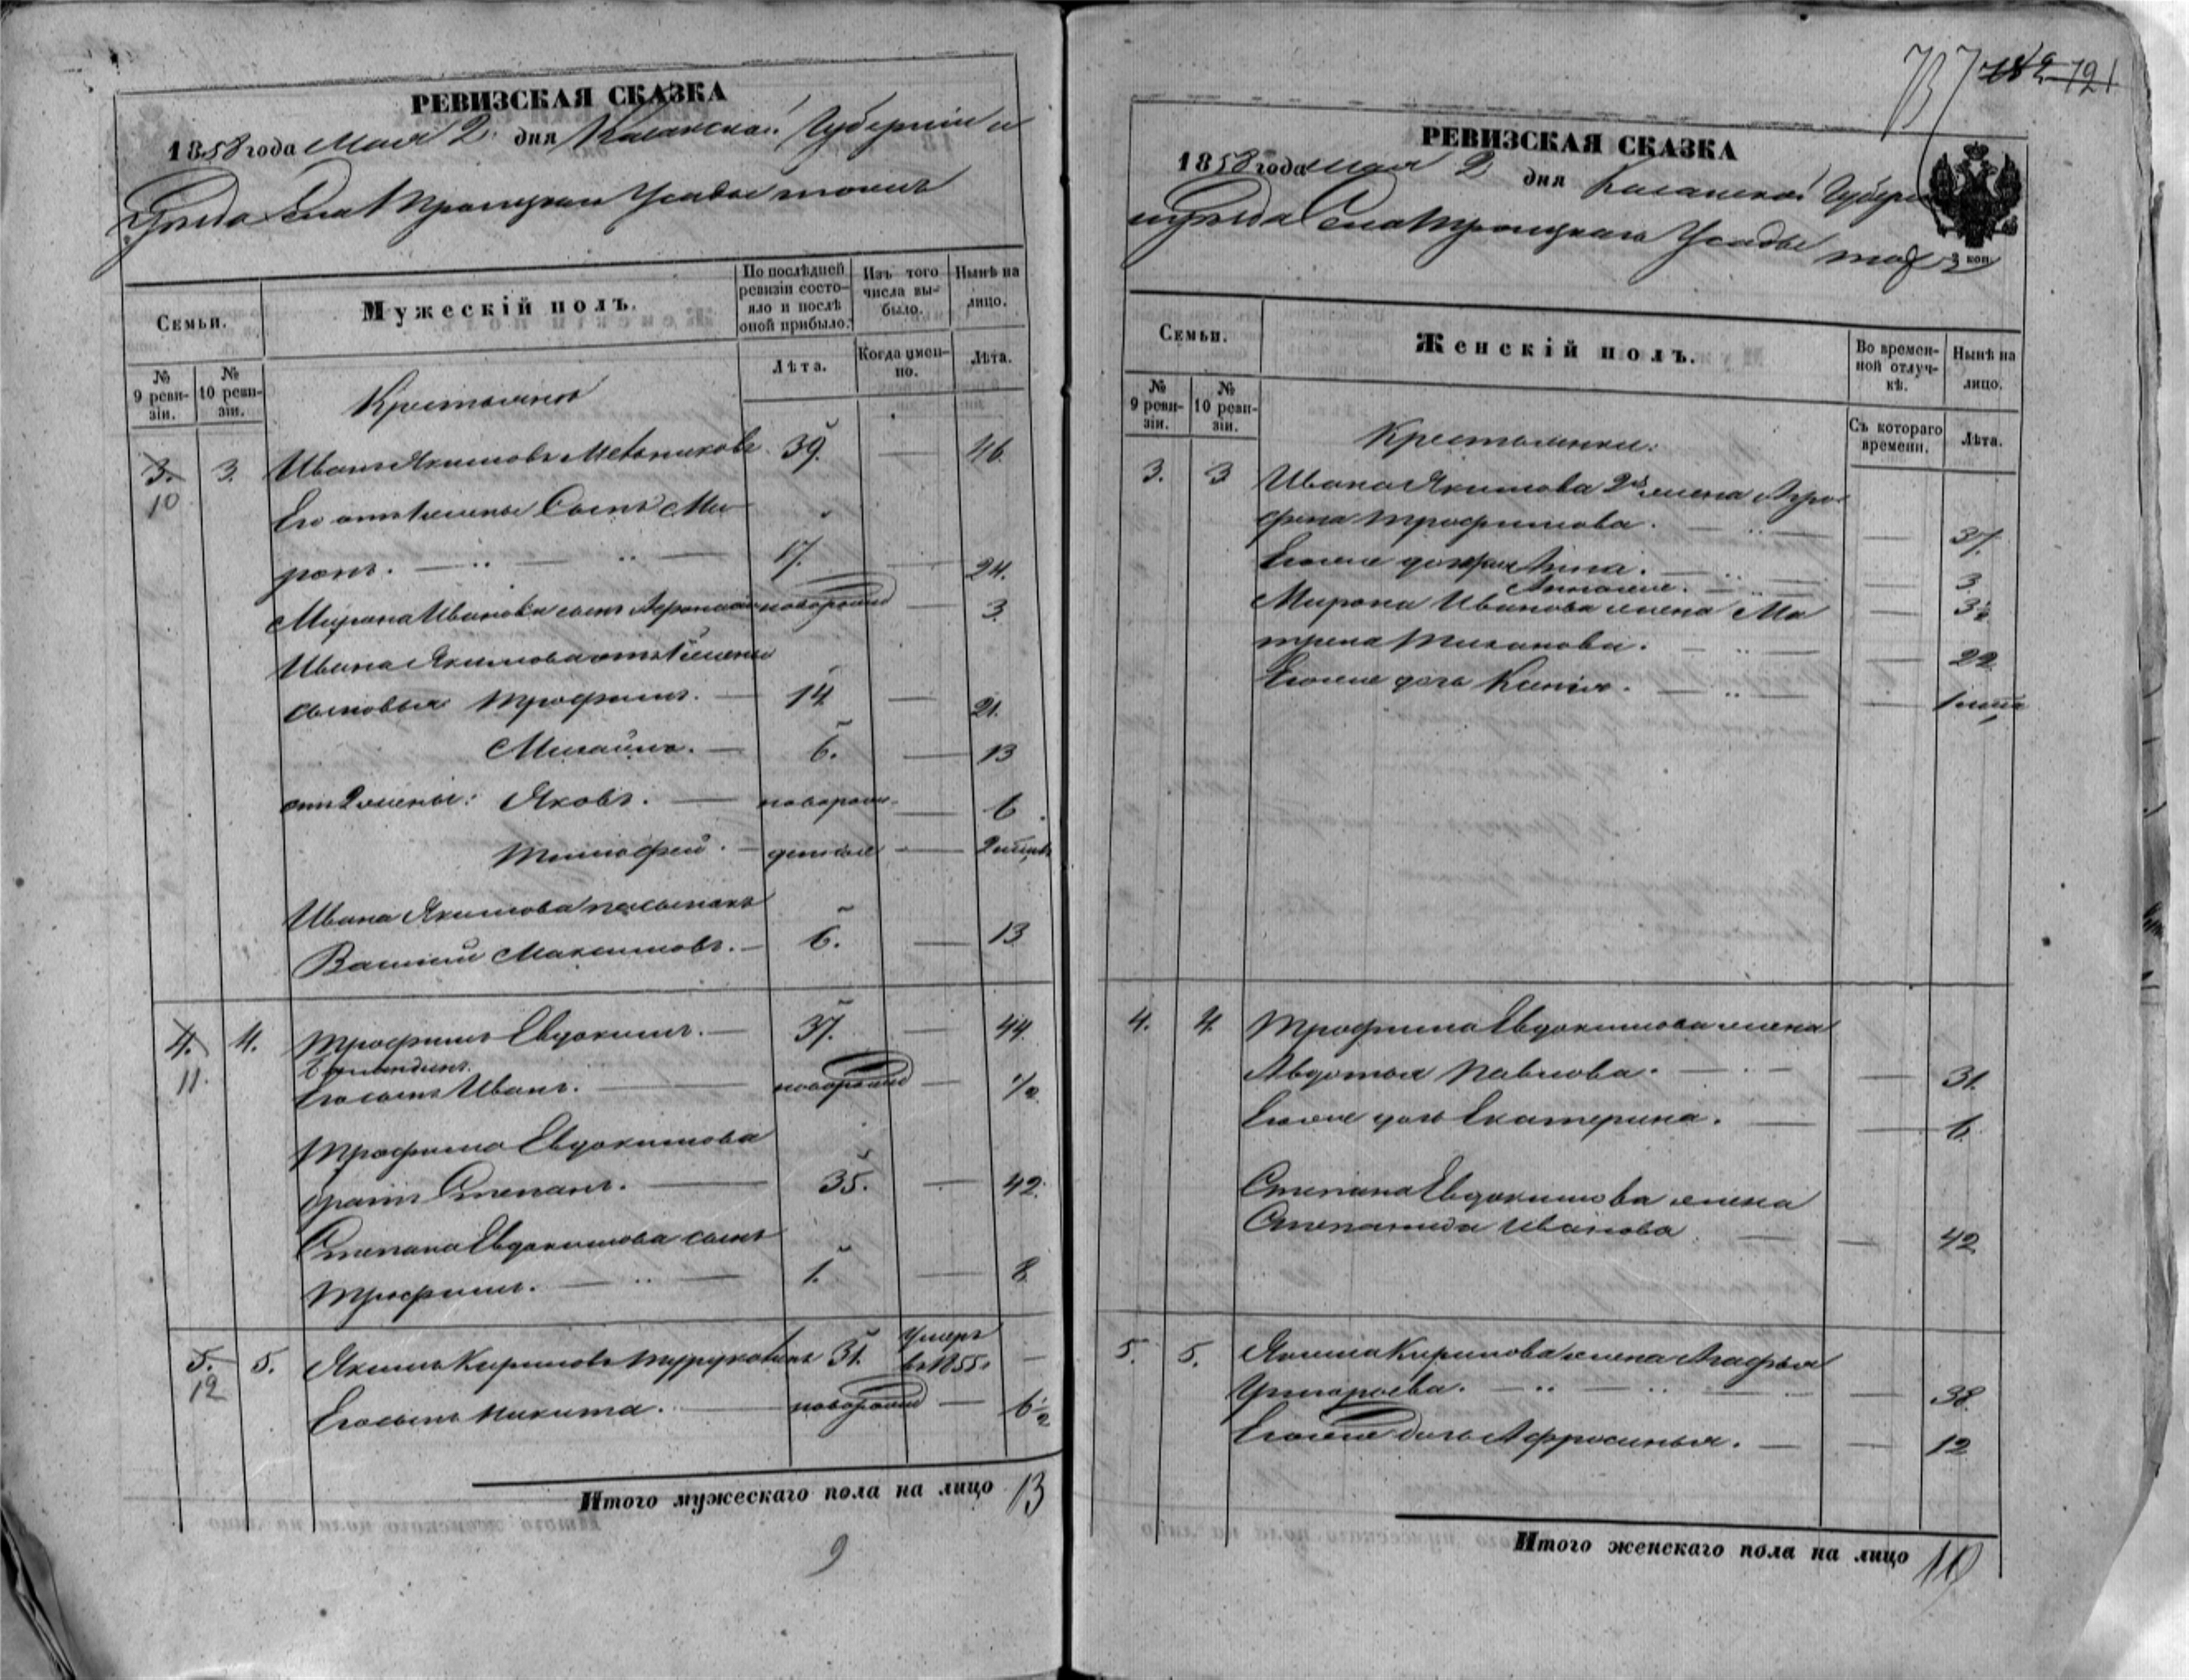 РЕВИЗСКАЯ СКАЗКА
1858 года Мая 2 дня Казанской Губерніи и
Уѣзда Села Троицкаго Усадье тожъ
Семьи.
Мужескій полъ.
По послѣдней ревизіи состояло и послѣ оной прибыло.
Изъ того числа выбыло.
Нынѣ на лицо.
№ 9 ревизіи.
№ 10 ревизіи.
Лѣта.
Когда именно.
Лѣта.
Крестьяне
3. 10 3. Иванъ Якимовъ Мельниковъ 39. 46.
Его отъ 1 жены Сынъ Ми
ронъ. 17. 24.
Мирона Иванова сынъ новорожд 3.
Ивана Якимова отъ 1 жены
сыновья Трофимъ. 14. 21.
Михайла. 6. 13
отъ 2 жены: Яковъ. новорожд. 6.
Тимофей.
Ивана Якимова пасынокъ
Василий Максимовъ. 6. 13
4. 11. 4. Трофимъ Евдоким. 37. 44.
Его сынъ Иванъ. новорожд 1/2
Трофима Евдокимова
братъ Степанъ. 35. 42.
Степана Евдокимова сынъ
Трофимъ. 1. 8
5. 12 5. Якимъ Кириловъ 31. Умеръ въ 1855.
Его сынъ Никита. новорожд 6 1/2
Итого мужескаго пола на лицо 13
9
737 182 121
РЕВИЗСКАЯ СКАЗКА
1858 года мая 2 дня Казанской Губерн
и уѣзда Села Троицкаго Усадье тож
коп.
Семьи.
Женскій полъ.
Во временной отлучкѣ.
Нынѣ на лицо.
№ 9 ревизіи.
№ 10 ревизіи.
Съ котораго времени.
Лѣта.
Крестьянки:
3. 3 Ивана Якимова 2я жена Агро
фена Трофимова. 37.
Ихъ дочери Анна. 3
3 1/2
Мирона Иванова жена Ма
трена 22
Ихъ дочь
4. 4. Трофима Евдокимова жена
Авдотья Павлова. 31.
Ихъ дочь Екатерина. 6
Степана Евдокимова жена
Степанида Иванова 42
5. 5. Якима Кирилова жена Агафья
Григорьева. 38.
Ихъ дочь Афросинья. 12
Итого женскаго пола на лицо 10